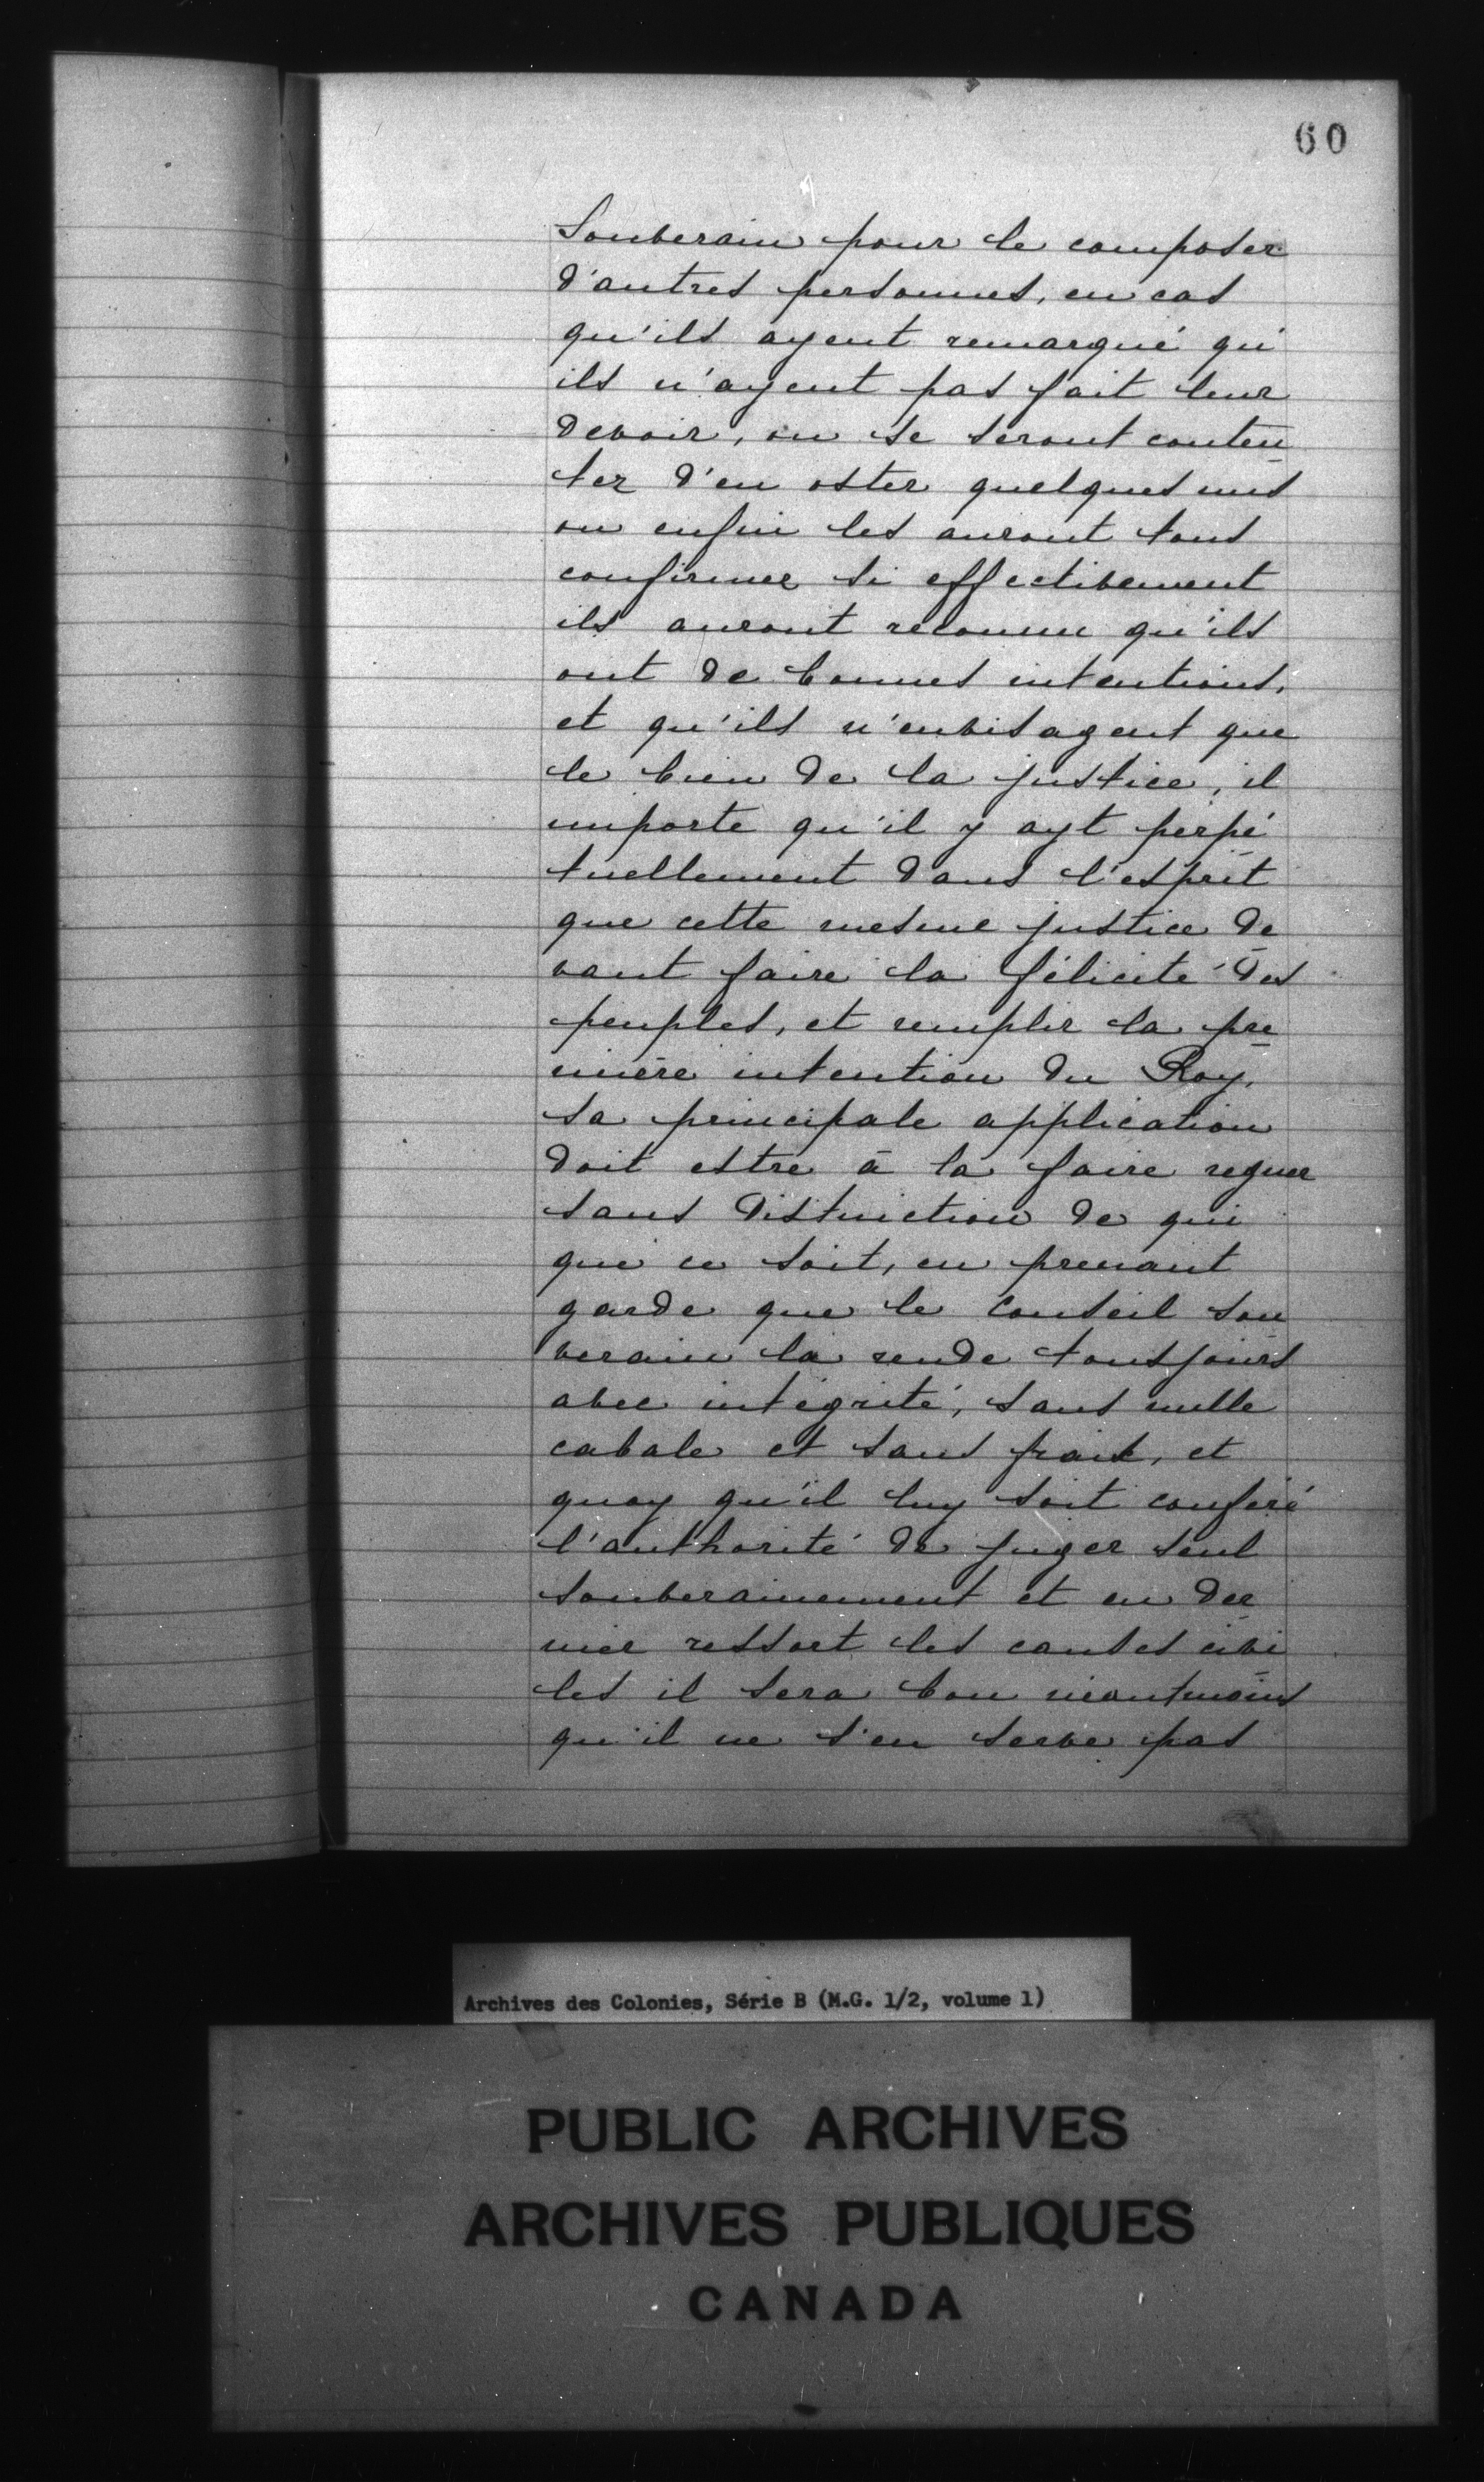 60
Souverain pour le composer
d'autres personnes, en cas
qu'ils ayent remarqué qu'
ils n'ayent pas fait leur
devoir, ou se seront conten
ter d'en oster quelques uns
ou enfin les auront tous
confirmez si effectivement
ils auront reconnu qu'ils
ont de bonnes intentions,
et qu'ils n'envisagent que
le bien de la justice, il
importe qu'il y ayt perpé
tuellement dans l'esprit
que cette mesme justice de
vant faire la félicité des
peuples, et remplir la pre
mière intention du Roy,
sa principale application
doit estre à la faire regner
sans distinction de qui
que ce soit, en prenant
garde que le Conseil sou
verain la rende tousjours
avec intégrité, sans nulle
cabale et sans frais, et
quoy qu'il luy soit conferé
l'authorité de juger seul
souverainement et en der
nier ressort les causes civi
les il sera bon néantmoins
qu'il ne s'en serve pas
Archives des Colonies, Série B (M.G. 1/2, volume 1)
PUBLIC ARCHIVES
ARCHIVES PUBLIQUES
CANADA